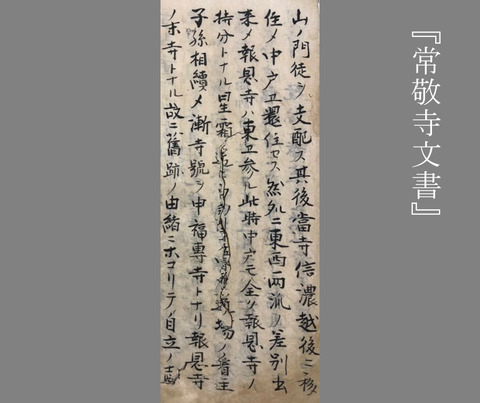 『常敬寺文書』
山ノ門徒ヲ支配ス其後當寺信濃越後ニ移
住メ中戸エ還住セス然ルニ東西両流ノ差別出
来メ報恩寺ハ東エ参ル此時中戸モ全ク報恩寺ノ
持分トナル星霜ノ 道場ノ看主
子孫相續メ漸寺號ヲ申福專寺トナリ報恩寺
ノ末寺トナル故ニ舊跡ノ由緒ニホコリテノ自立ノ